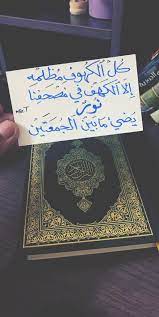 كُلُّ الْكُهُوفِ مُظْلِمَة
إِلَّا الْكَهْفُ فِي مُصْحَفِنَا
نُورٌ
يُضِيءُ مَا بَيْنَ الْجُمُعَتَيْنِ